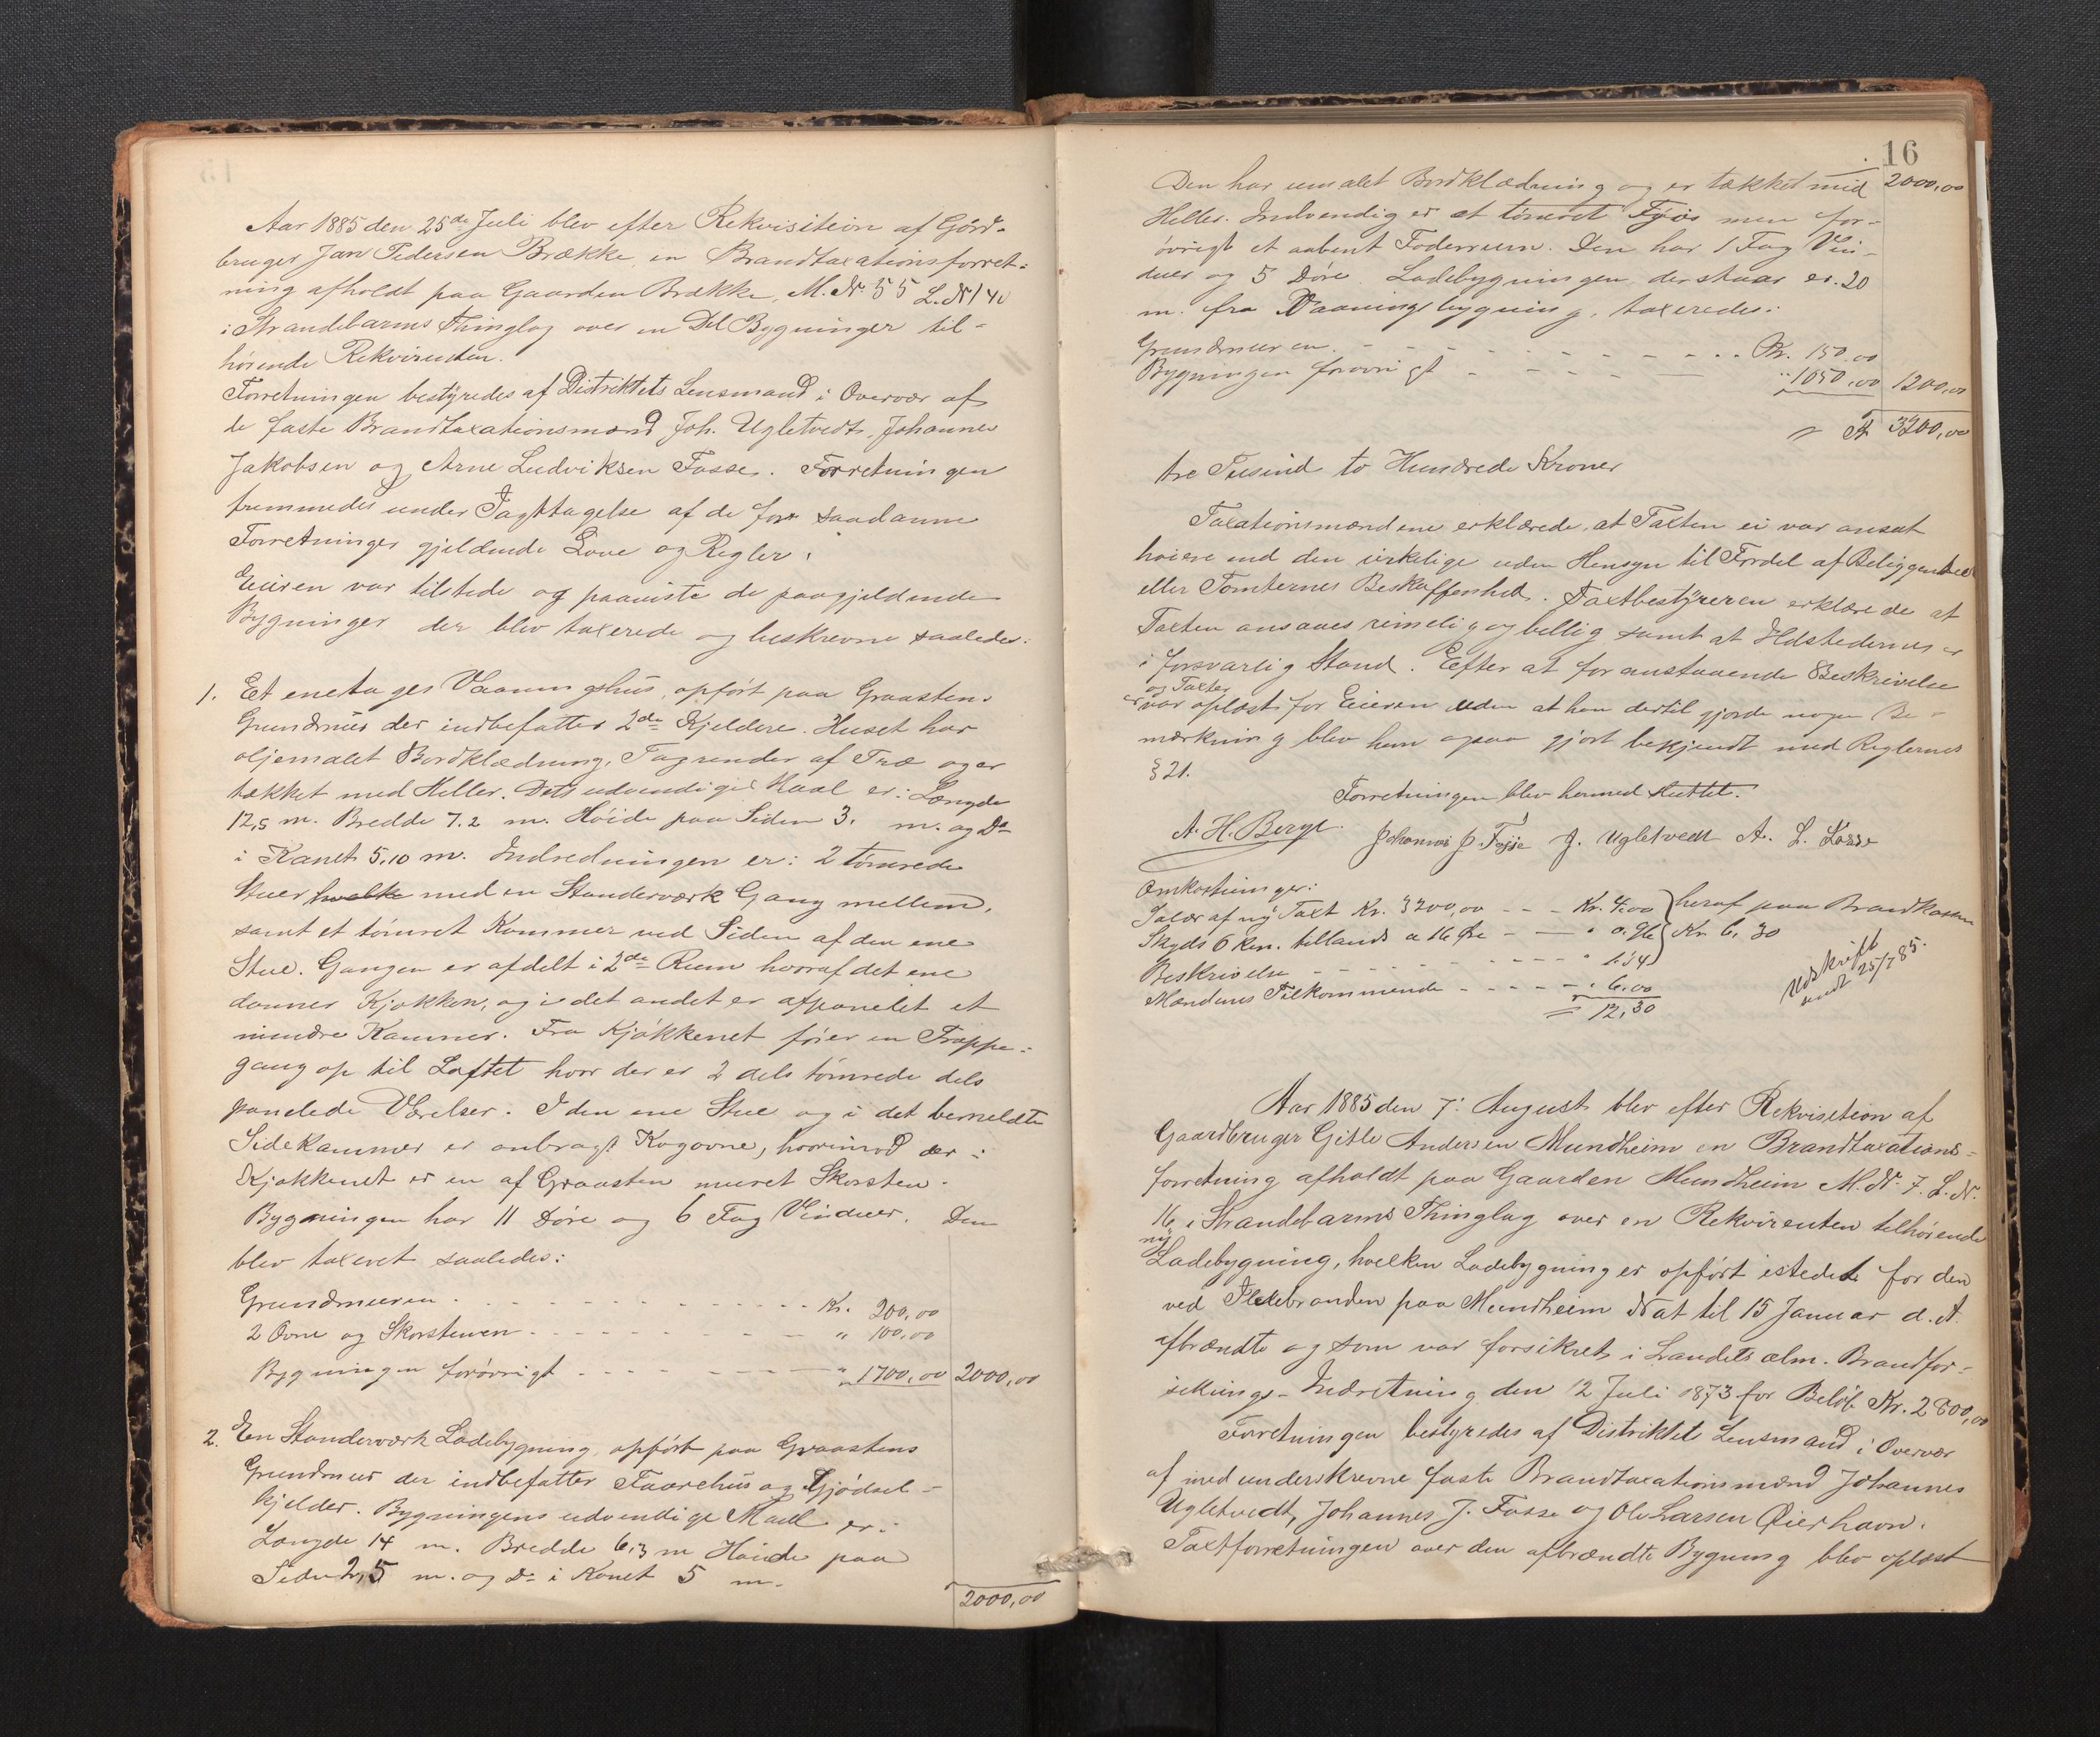 Aar 1885 den 25de Juli blev efter Rekvisition af Gård-
bruger Jan Pedersen Brække en Brandtaxationsforret-
ning afholdt paa Gaarden Brække, M. Nr. 55 L. Nr 140
i Strandebarms Thinglag over en Del Bygninger til-
hørende Rekvirenten.
Forretningen bestyredes af Distriktets Lensmand i Overvær af
de faste Brandtaxationsmænd Joh. Ugletvedt, Johannes
Jakobsen og Arne Ludviksen Fosse. Forretningen
fremmedes under Iagttagelse af de for saadanne
Forretninger gjeldende Love og Regler.
Eieren var tilstede og paaviste de paagjeldende
Bygninger der blev taxerede og beskrevne saaledes:
1. Eet enetages Vaaningshus, opført paa Graastens
Grundmur der indbefatter 2de Kjeldere. Huset har
oljemalet Bordklædning, Tagrender af Træ og er
tækket med Heller. Dets udvendige Maal er: Længde
12,5 m. Bredde 7.2 m. Høide paa Siden 3. m. og Do
i Kanet 5,10 m. Indredningen er: 2 tømrede
Stuer hvalke med en Standerværk Gang mellem,
samt et tømret Kammer ved Siden af den ene
Stue. Gangen er afdelt i 2de Rum hvoraf det ene
danner Kjøkken, og i det andet er afpanelet et
mindre Kammer. Fra Kjøkkenet fører en Trappe-
gang op til Loftet hvor der er 2 dels tømrede dels
panelede Værelser. I den ene Stue og i det bemeldte
Sidekammer er anbragt Kogovne, hvorimod der i
Kjøkkenet er en af Graasten muret Skorsten.
Bygningen har 11 Døre og 6 Fag Vinduer. Den
blev taxeret saaledes:
Grundmuren . - - - - - - - - - Kr. 200,00
2 Ovne og Skorstenen - - - - - - - - - " 100,00
Bygningen forøvrigt - - - - - - - " 1700,00 2000,00
2. En Standerværk Ladebygning, opført paa Graastens
Grundmur der indbefatter Faarehus og Gjødsel-
kjelder. Bygningens udvendige Maal er:
Længde 14 m. Bredde 6,3 m Høide paa
Siden 2,5 m. og Do i Kanet 5 m.
2000,00
16
Den har umalet Bordklædning og er tækket med 2000,00
Heller. Indvendig er et tømret Fjøs men for-
øvrigt et aabent Foderrum. Den har 1 Fag Vin-
duer og 5 Døre. Ladebygningen, der staar er. 20
m. fra Vaaningsbygning, taxeredes:
Grundmuren . - - - - - - - - - Kr. 150,00
Bygningen forøvrigt - - - - - " 1050,00 1200,00
= Kr 3200,00
tre Tusind to Hundrede Kroner
Taxationsmændene erklærede, at Taxten ei var ansat
høiere end den virkelige uden Hensyn til Fordel af Beliggenhed
eller Tomternes Beskaffenhed. Taxtbestyreren erklærede at
Taxten ansaaes rimelig og billig samt at Ildstederne er
i forsvarlig Stand. Efter at foranstaaende Beskrivelse
og Taxter
var oplæst for Eieren uden at han dertil gjorde nogen Be-
mærkning blev han ogsaa gjort bekjendt med Reglernes
§ 21.
Forretningen blev hermed sluttet.
A. H. Berge. Johannes J. Fosse J. Ugletvedt A. L. Fosse
Omkostninger:
Salær af ny Taxt Kr. 3200,00 - - - Kr. 4,00 } heraf paa Brandkassen
Skyds 6 km. tillands a 16 Øre - - - " 0.96 } Kr. 6,30
Beskrivelse - - - - - - - - - - " 1.34
Mændenes Tilkommende - - - - - " 6,00
= 12,30
Udskrift
sendt 25/7 85.
Aar 1885 den 7. August blev efter Rekvisition af
Gaardbruger Gitle Andersen Mundheim en Brandtaxations-
forretning afholdt paa Gaarden Mundheim M. Nr. 7. L. Nr.
16 i Strandebarms Thinglag over en Rekvirenten tilhørende
ny
Ladebygning, hvilken Ladebygning er opført istedet for den
ved Ildebranden paa Mundheim Nat til 15 Januar d. A.
afbrændte og som var forsikret i Landets alm. Brandfor-
sikrings-Indretning den 12 Juli 1873 for Beløb Kr. 2800,00
Forretningen bestyredes af Distriktets Lensmand i Overvær
af medunderskrevne faste Brandtaxationsmænd Johannes
Ugletvedt, Johannes J. Fosse og Ole Larsen Øierhavn.
Taxtforretningen over den afbrændte Bygning blev oplæst